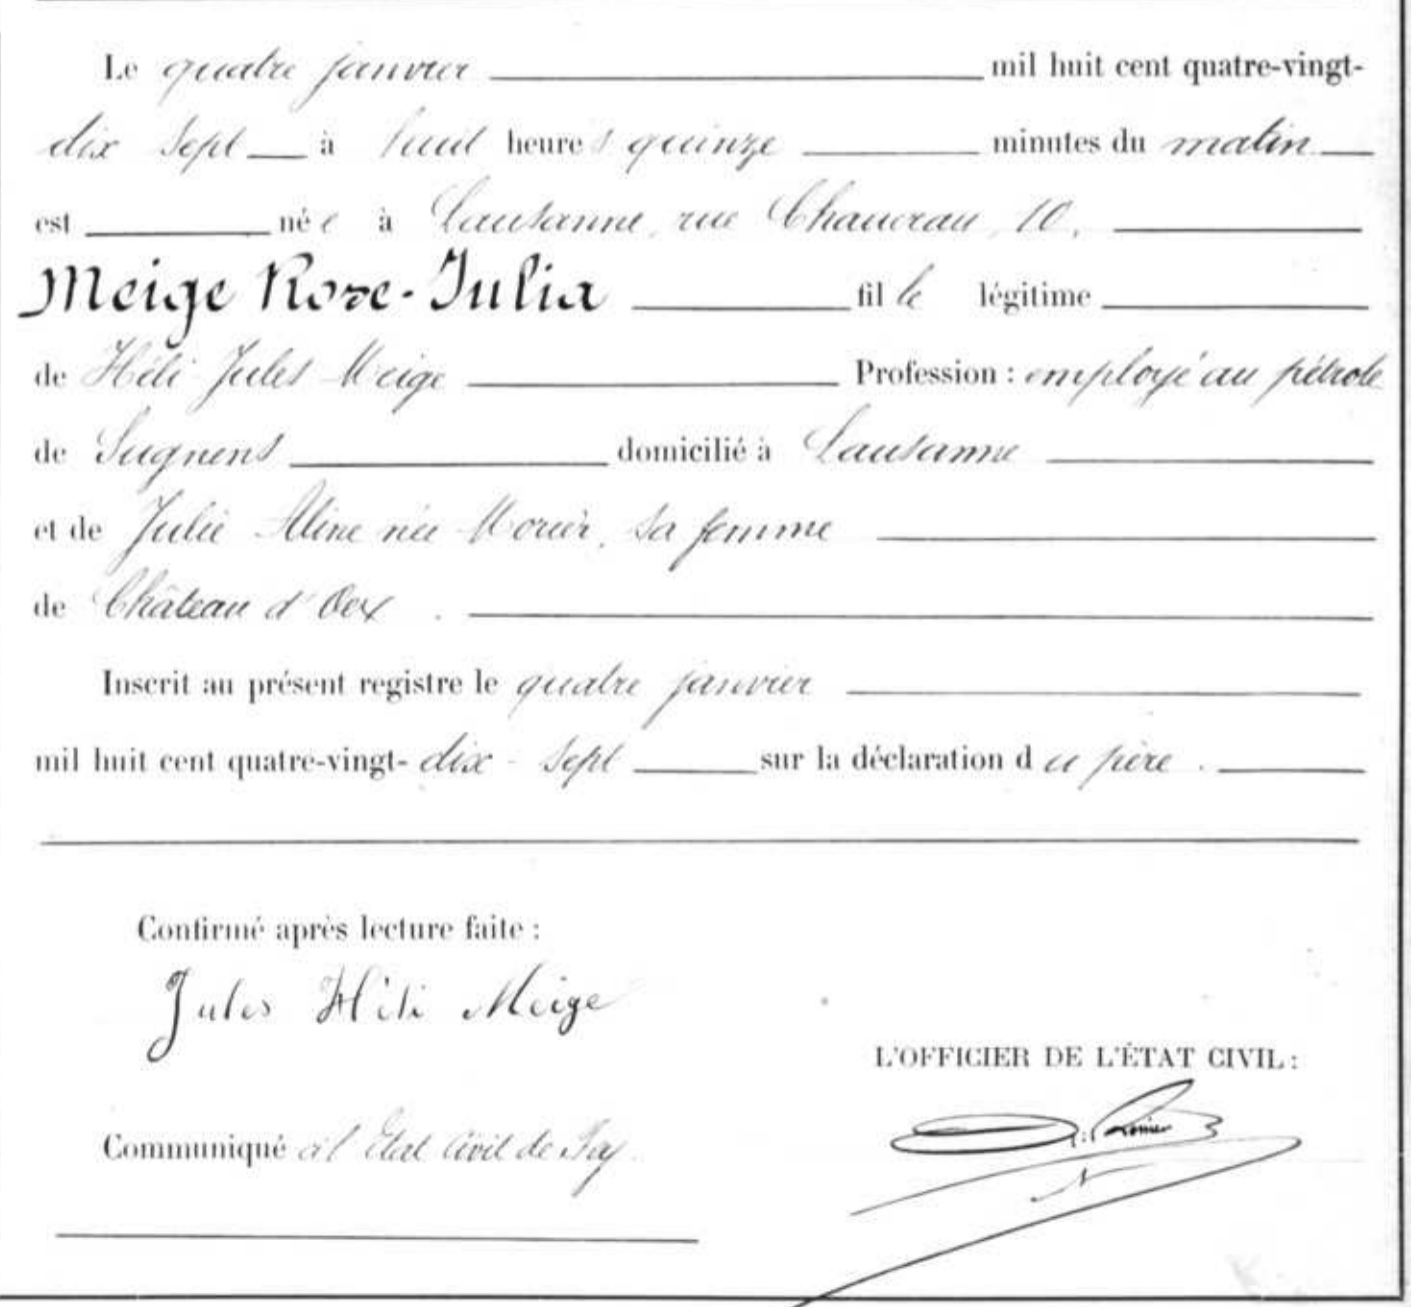 Le quatre janvier mil huit cent quatre-vingt-
dix sept à huit heures quinze minutes du matin
est née à Lausanne, rue Chaucrau, 10.
Meige Rose-Julia fille légitime
de Héli Jules Meige Profession : employé au pétrole
de Sugnens domicilié à Lausanne
et de Julie Aline née Morier, sa femme
de Château d'Oex.
Inscrit au présent registre le quatre janvier
mil huit cent quatre-vingt-dix-sept sur la déclaration du père.
Confirmé après lecture faite :
Jules Héli Meige
L'OFFICIER DE L'ÉTAT CIVIL :
Communiqué à l'Etat Civil de